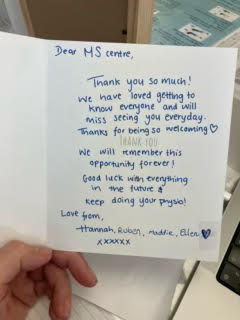 Dear MS centre,
Thank you so much!
We have loved getting to
know everyone and will
miss seeing you everyday.
Thanks for being so welcoming♡
THANK YOU
We will remember this
opportunity forever!
Good luck with everything
in the future &
keep doing your physio!
Love from,
Hannah, Ruben, Maddie, Ellen
xxxxxx